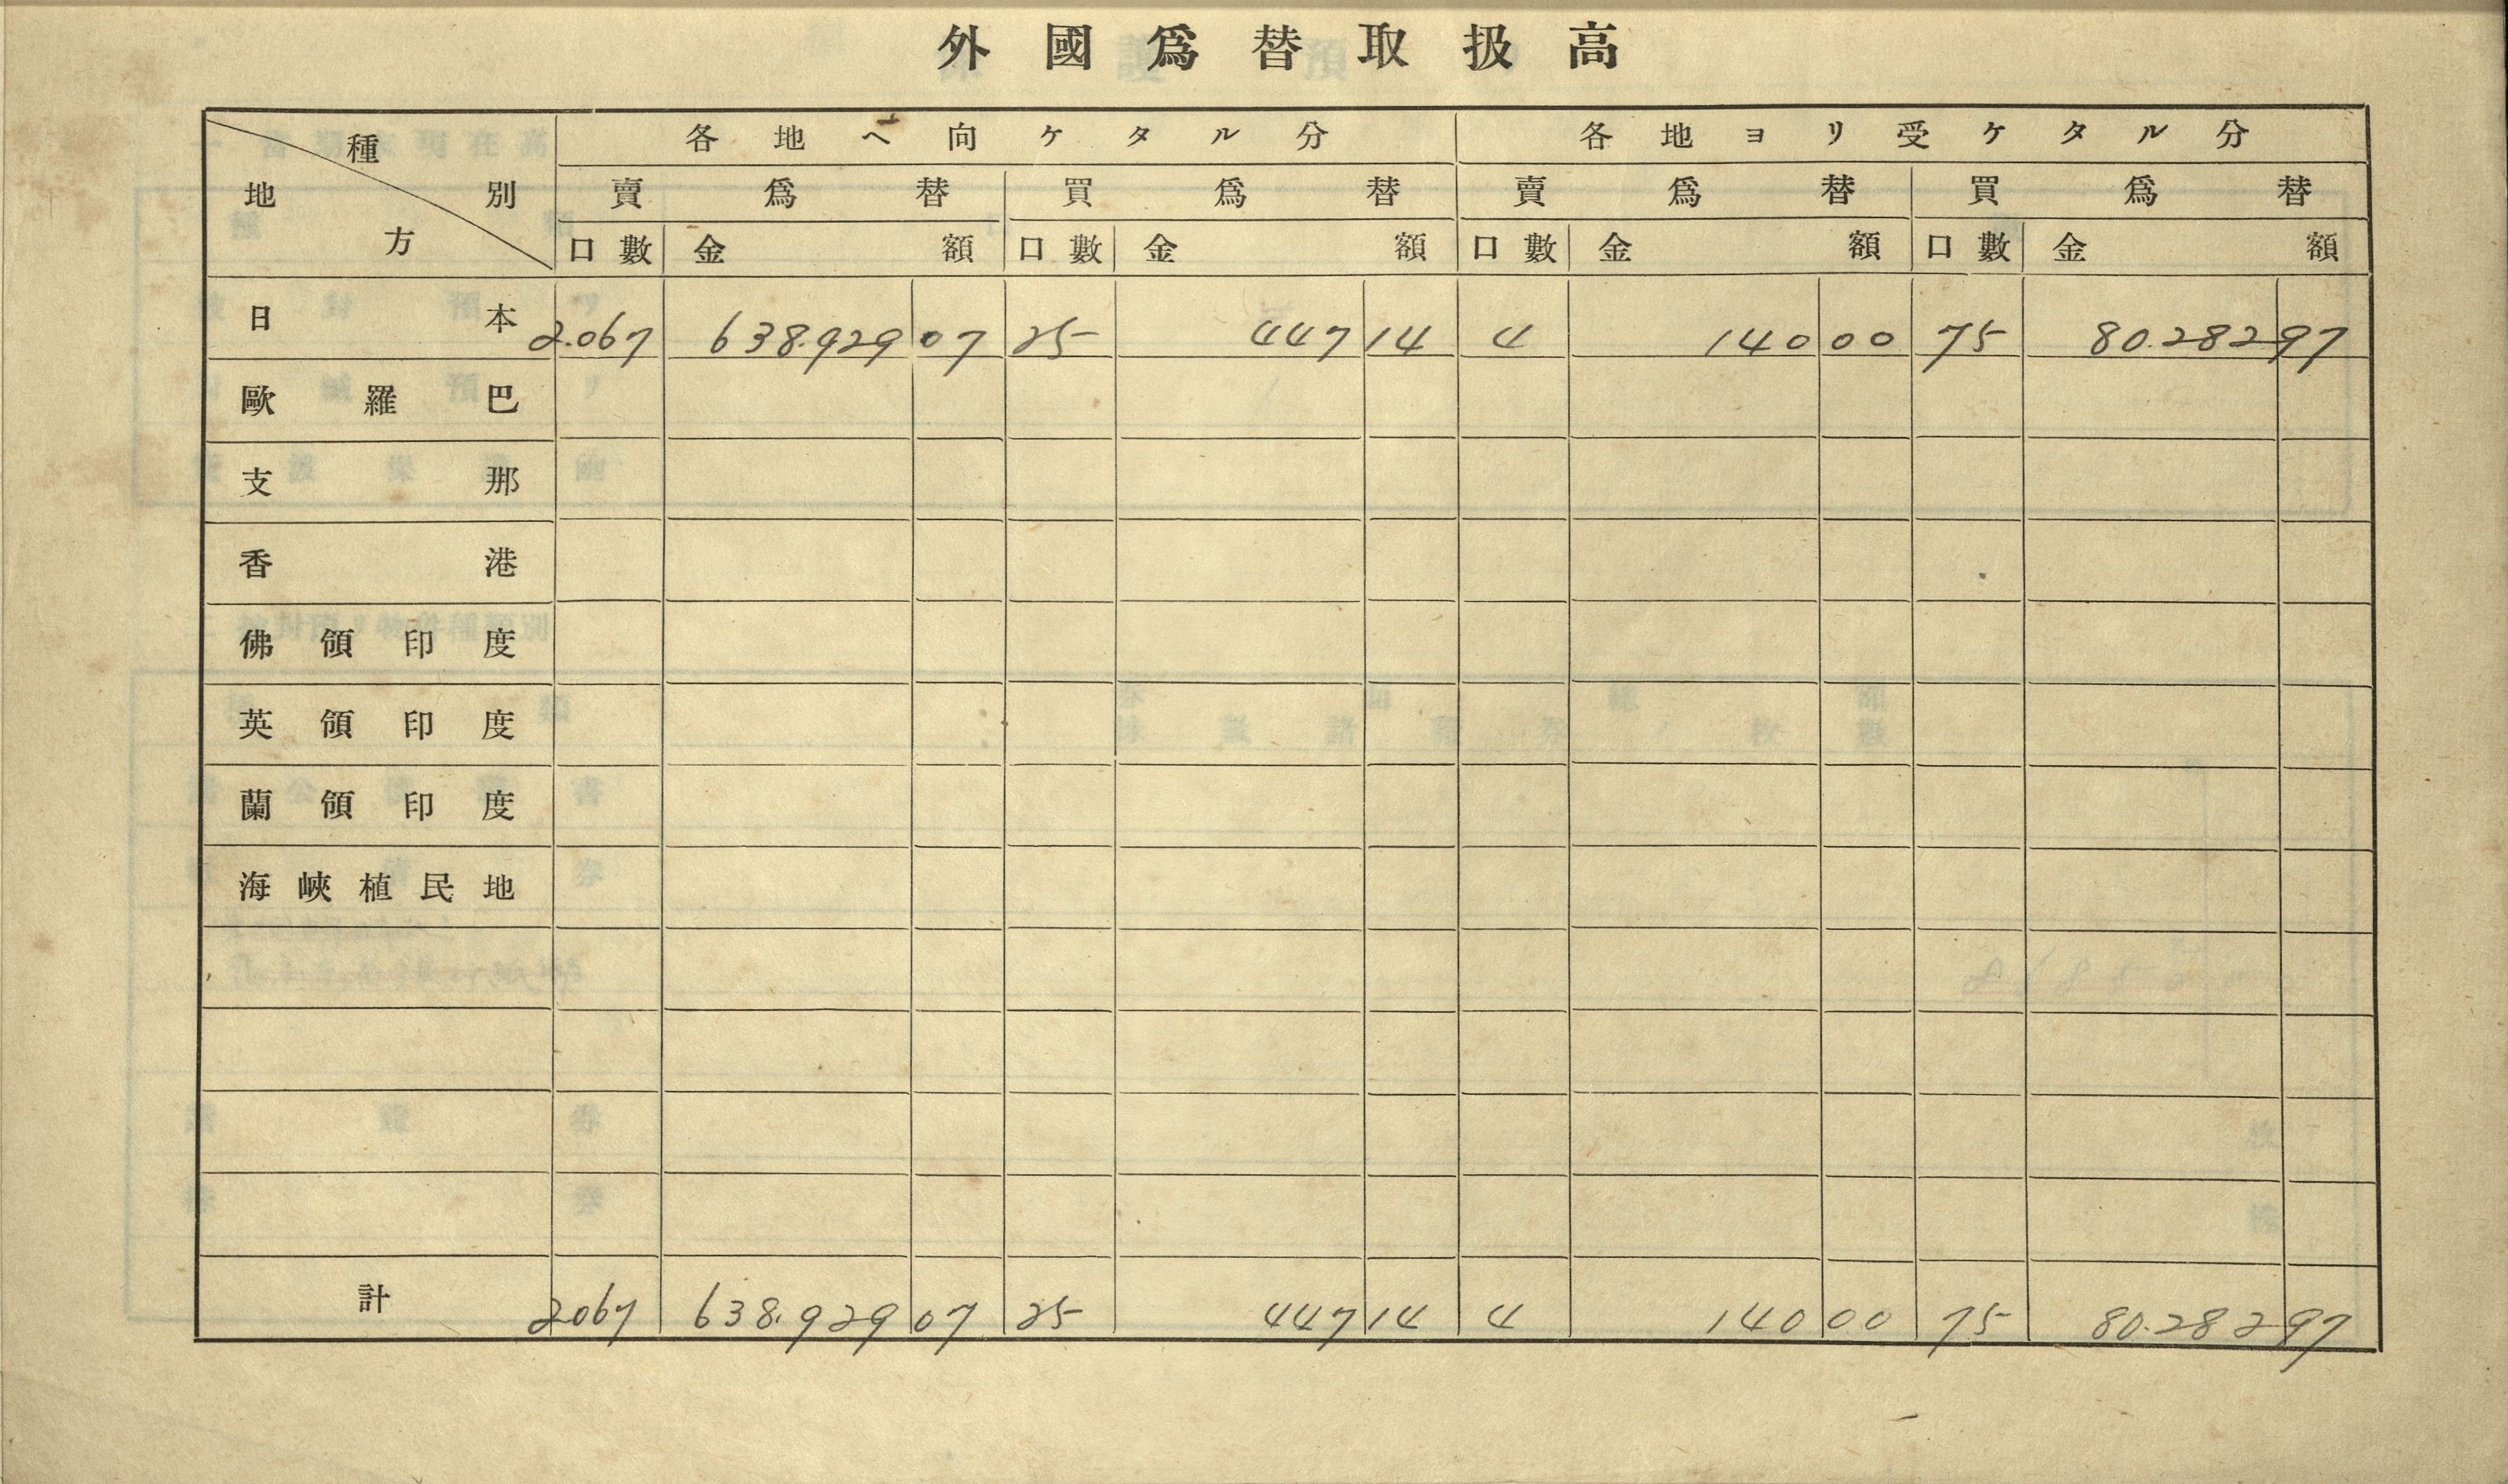 外國爲替取扱高
種別 地方 各地ヘ向ケタル分 各地ヨリ受ケタル分
賣爲替 買爲替 賣爲替 買爲替
口數 金額 口數 金額 口數 金額 口數 金額
日本 2.067 638.929 07 25 447 14 4 140 00 75 80.282 97
歐羅巴
支那
香港
佛領印度
英領印度
蘭領印度
海峽植民地
計 2067 638.929 07 25 447 14 4 140 00 75 80.282 97